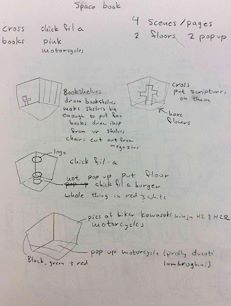 Space book
cross chick fil a
books pink
motorcycles
4 scenes/pages
2 floors, 2 pop up
Bookshelves
draw bookshelves
make shelves big
enough to put fox
books draw
from shelves
chairs cut out from
magazines
cross
put scriptures
on them
have
flowers
logo
chick fil-a
not pop up put floor
pop up chick fil a burger
whole thing in red & white
pics of biker kawasaki ninja H2 & H2R
motorcycles
pop up motorcycle (prolly ducati
lamborghini)
Black, green & red